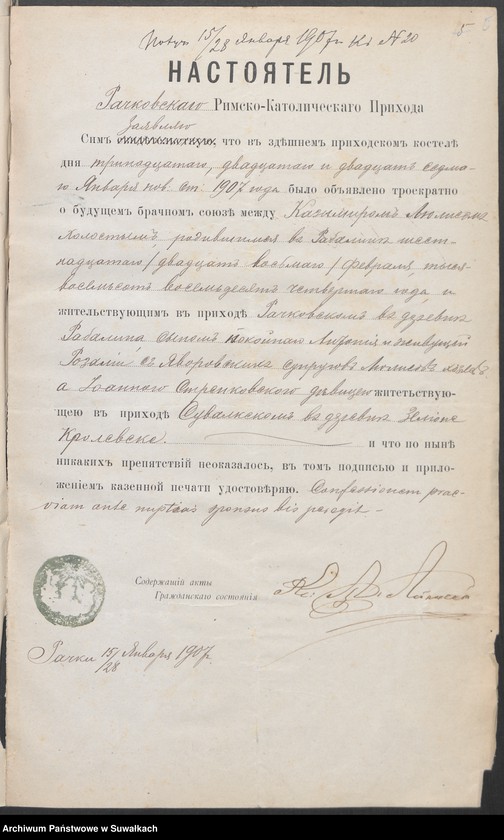 Получ. 15/28 Января 1907 г. Кс. № 20
5
НАСТОЯТЕЛЬ
Рачковскаго Римско-Католическаго Прихода
Заявляю
Симъ что въ здѣшнемъ приходскомъ костелѣ
дня тринадцатаго, двадцатаго и двадцать седма-
го Января нов. ст. 1907 года было объявлено троекратно
о будущемъ брачномъ союзѣ между Казимиромъ
холостымъ, родившимся въ Рабалинѣ шест-
надцатаго / двадцать восьмаго / Февраля, тыся-
восемьсотъ восемьдесятъ четвертаго года, и
жительствующимъ въ приходѣ Рачковскомъ въ деревнѣ
Рабалина, сыномъ покойнаго и живущей
Розаліи, съ Яворовскихъ супруговъ
а Іоанною дѣвицею житетьствую-
щею въ приходѣ Сувалкскомъ въ деревнѣ Зелiоне
Кролевске. и что по нынѣ
никакихъ препятствій неоказалось, въ томъ подписью и прило-
женіемъ казенной печати удостовѣряю. Confessionem prae-
viam ante nuptias sponsus bis peregit –
Содержащій акты
Гражданскаго состоянія
Рачки 15/28 Января 1907 г.
Archiwum Państwowe w Suwałkach